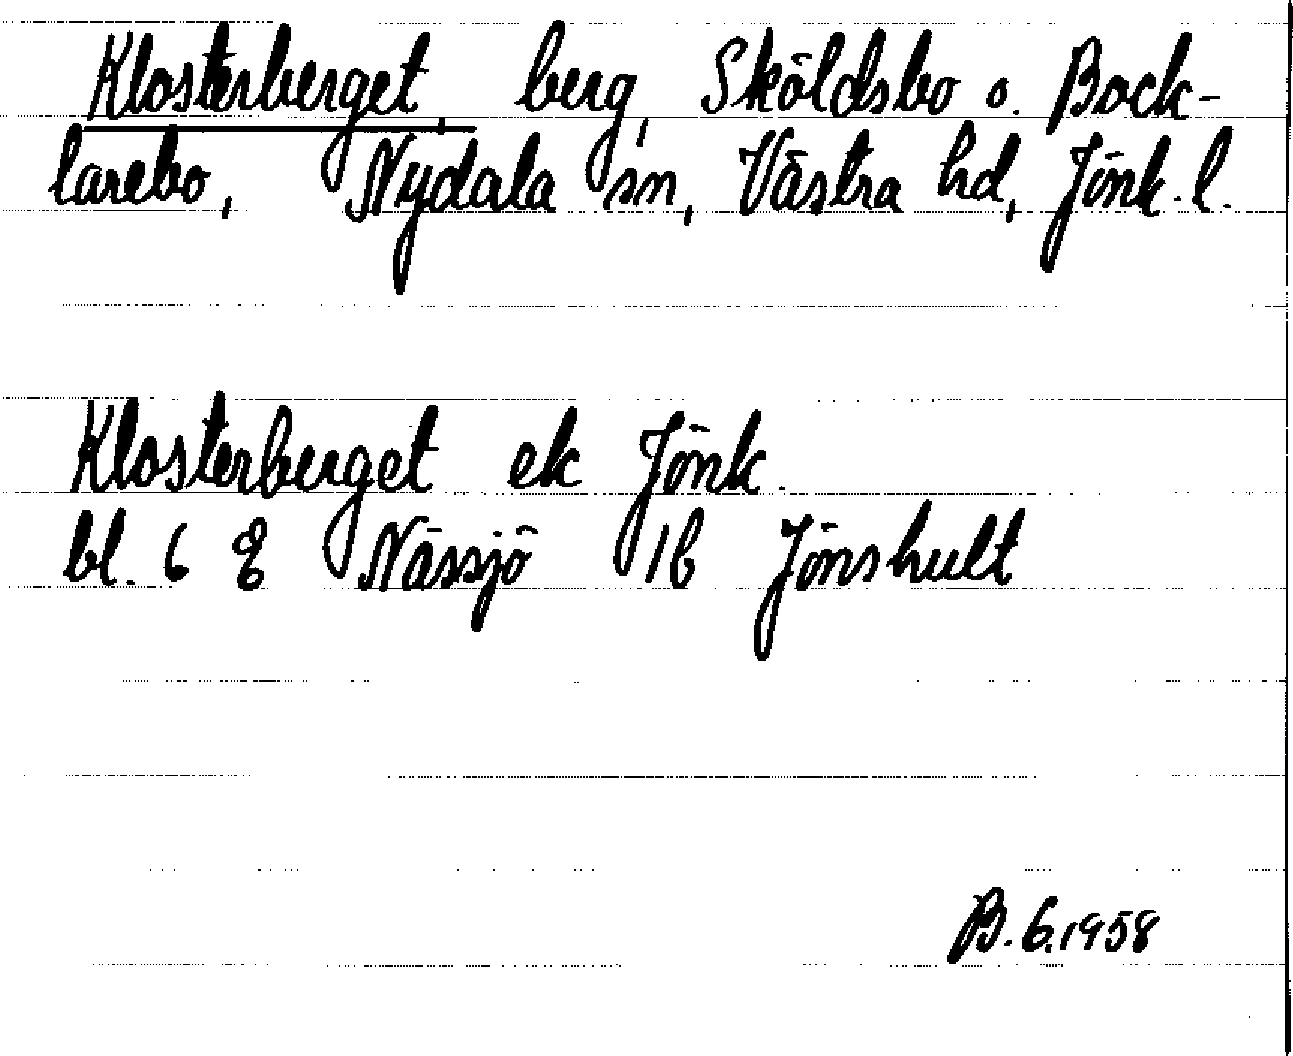 Klosterberget, berg, Sköldsbo o. Bock-
larebo, Nydala sn, Västra hd, Jönk. l.
Klosterberget ek Jönk.
bl. 6 E Nässjö 1b Jönshult
B.6.1958